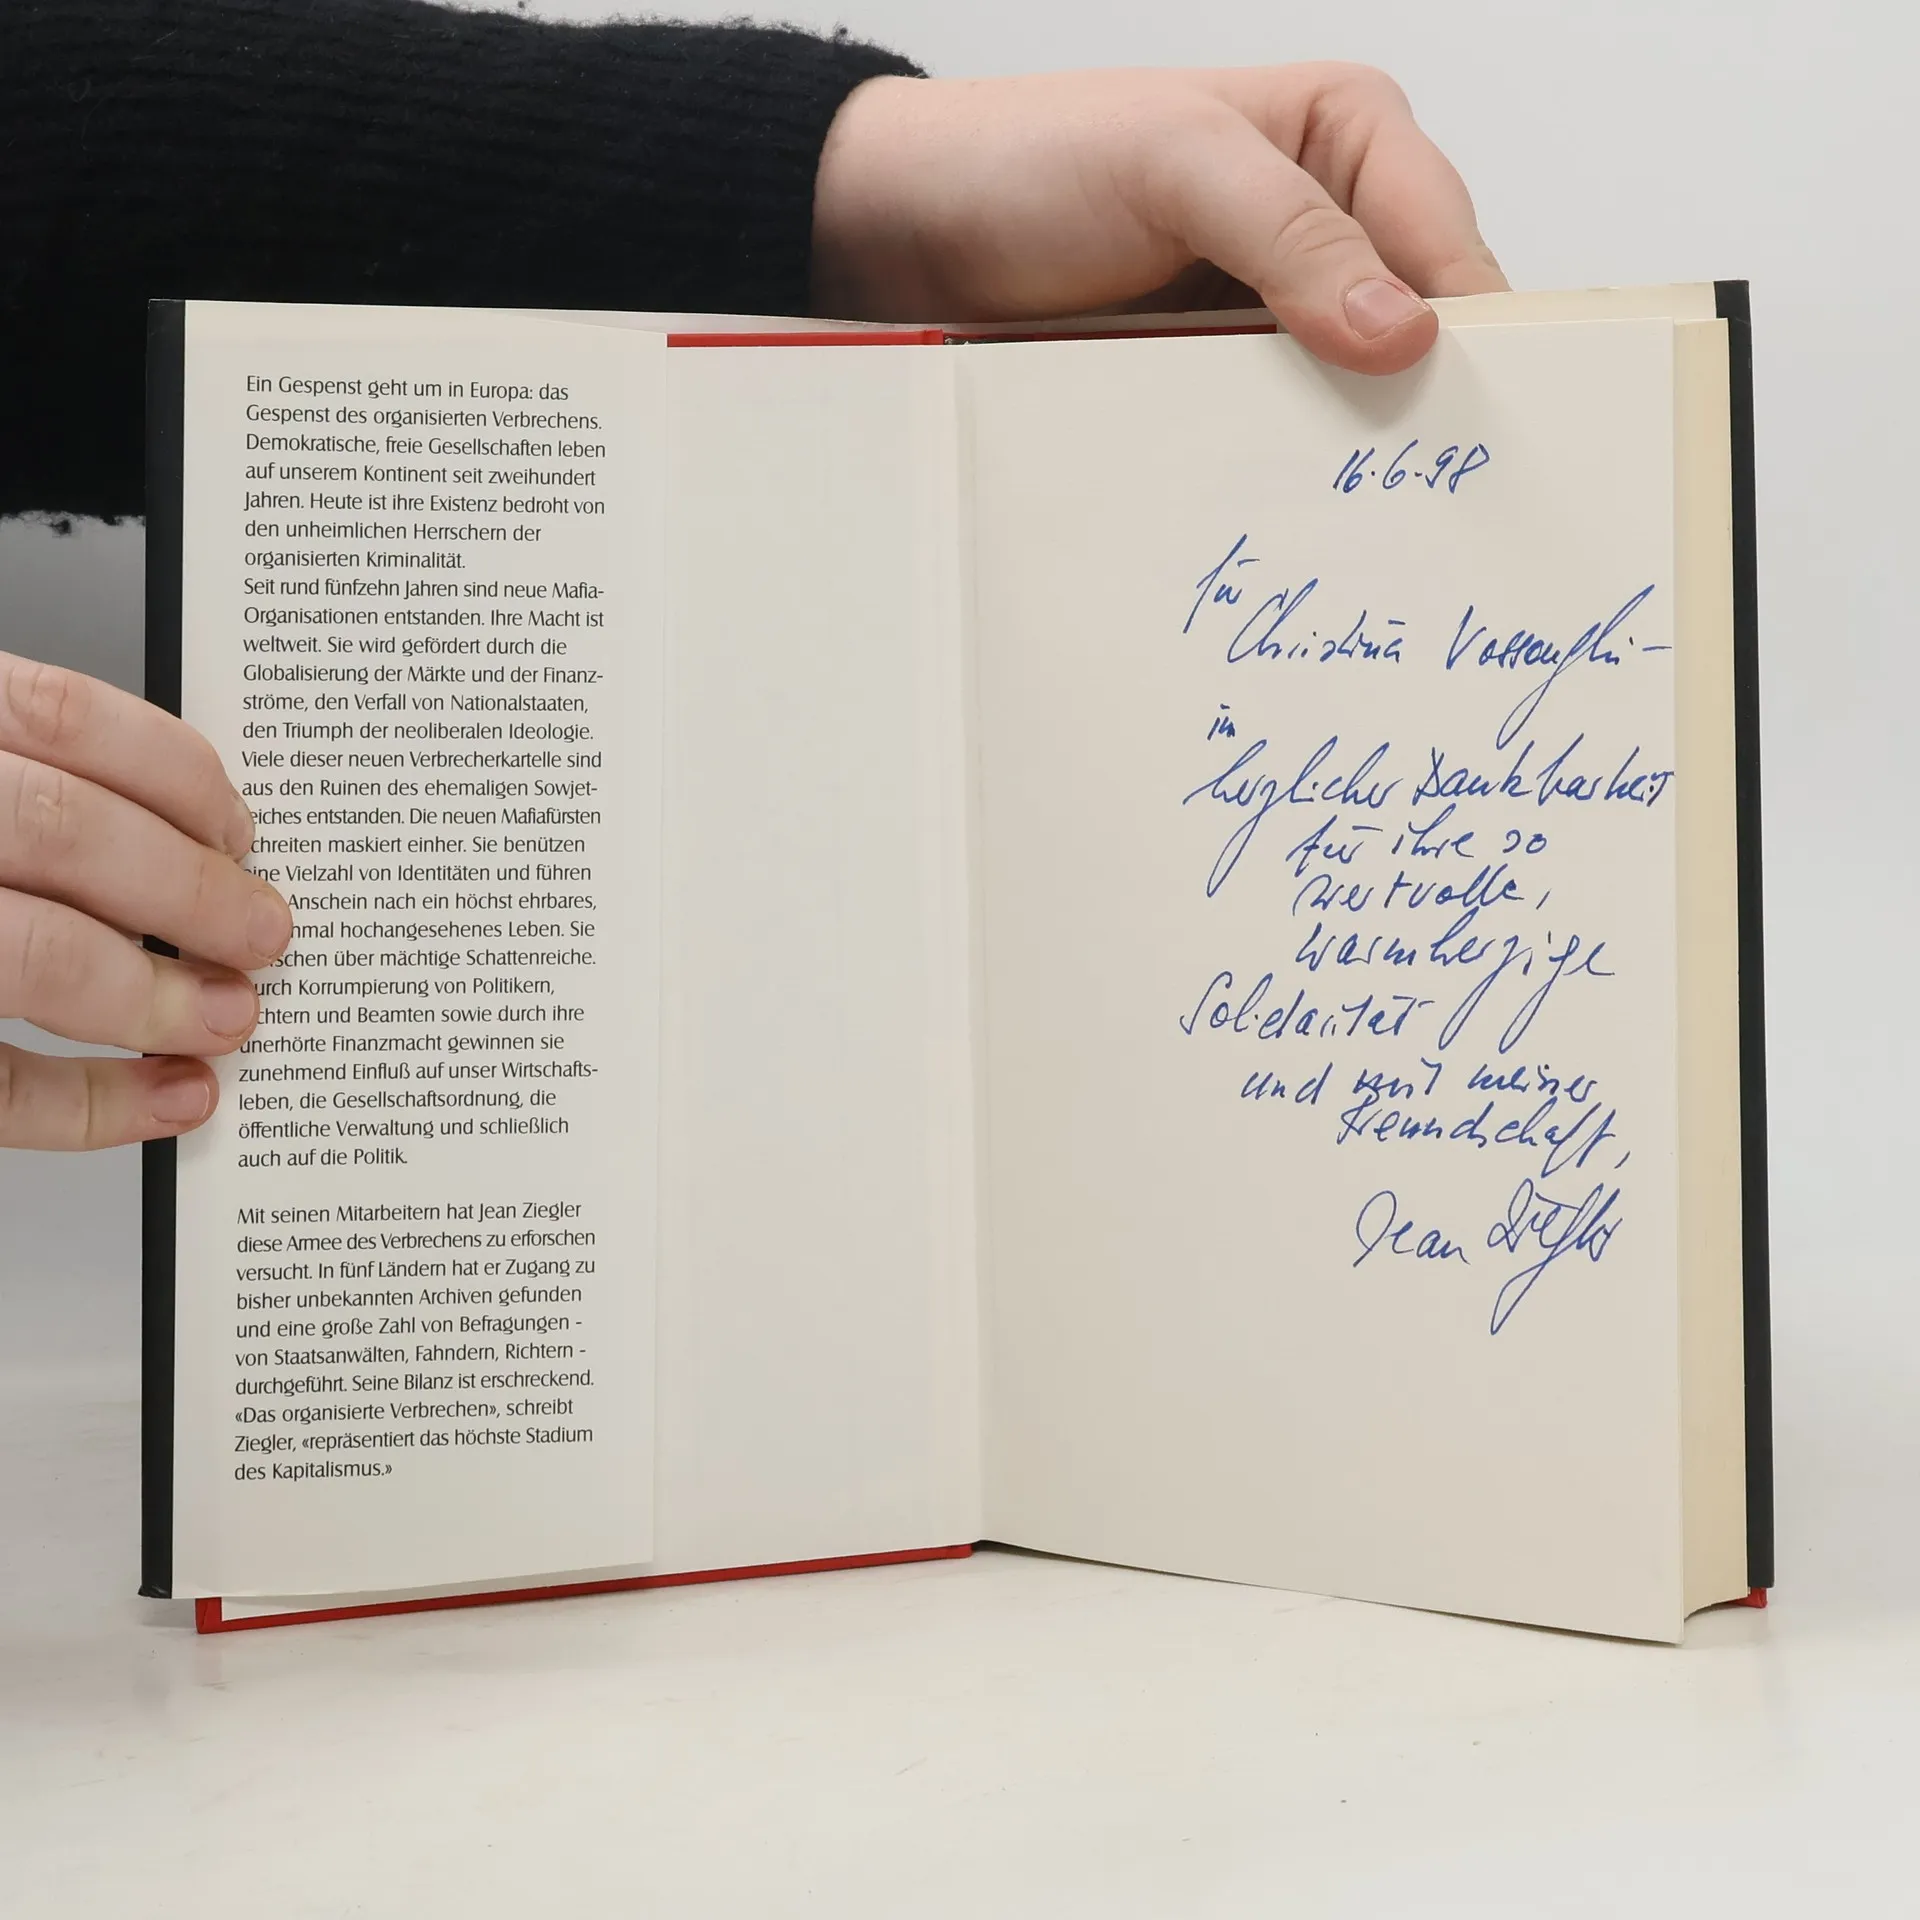 Ein Gespenst geht um in Europa: das
Gespenst des organisierten Verbrechens.
Demokratische, freie Gesellschaften leben
auf unserem Kontinent seit zweihundert
Jahren. Heute ist ihre Existenz bedroht von
den unheimlichen Herrschern der
organisierten Kriminalität.
Seit rund fünfzehn Jahren sind neue Mafia-
Organisationen entstanden. Ihre Macht ist
weltweit. Sie wird gefördert durch die
Globalisierung der Märkte und der Finanz-
ströme, den Verfall von Nationalstaaten,
den Triumph der neoliberalen Ideologie.
Viele dieser neuen Verbrecherkartelle sind
aus den Ruinen des ehemaligen Sowjet-
eiches entstanden. Die neuen Mafiafürsten
chreiten maskiert einher. Sie benützen
ine Vielzahl von Identitäten und führen
Anschein nach ein höchst ehrbares,
hmal hochangesehenes Leben. Sie
schen über mächtige Schattenreiche.
urch Korrumpierung von Politikern,
chtern und Beamten sowie durch ihre
unerhörte Finanzmacht gewinnen sie
zunehmend Einfluß auf unser Wirtschafts-
leben, die Gesellschaftsordnung, die
öffentliche Verwaltung und schließlich
auch auf die Politik.
Mit seinen Mitarbeitern hat Jean Ziegler
diese Armee des Verbrechens zu erforschen
versucht. In fünf Ländern hat er Zugang zu
bisher unbekannten Archiven gefunden
und eine große Zahl von Befragungen -
von Staatsanwälten, Fahndern, Richtern -
durchgeführt. Seine Bilanz ist erschreckend.
«Das organisierte Verbrechen», schreibt
Ziegler, «repräsentiert das höchste Stadium
des Kapitalismus.»
16.6.98
für
Christina
in
herzlicher Dankbarkeit
für ihre so
wertvolle,
warmherzige
Solidarität
und mit meiner
Freundschaft,
Jean Ziegler